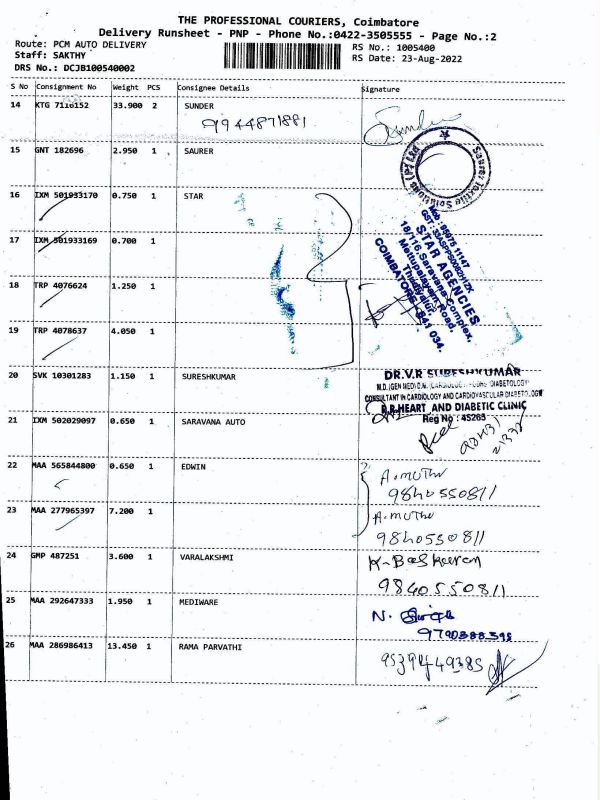 THE PROFESSIONAL COURIERS, Coimbatore
Delivery Runsheet - PNP - Phone No.:0422-3505555 - Page No.:2
Route: PCM AUTO DELIVERY
RS No.: 1005400
Staff: SAKTHY
RS Date: 23-Aug-2022
DRS No.: DCJB100540002
S No Consignment No Weight PCS Consignee Details Signature
14 KTG 7116152 33.900 2 SUNDER
9944871881
15 GNT 182696 2.950 1 SAURER
Saurer Textile Solutions (P) Ltd
16 IXM 501933170 0.750 1 STAR
17 IXM 501933169 0.700 1
18 TRP 4076624 1.250 1
STAR AGENCIES
18/116 Saravana Complex,
Mettupalayam Road,
Thudiyalur,
COIMBATORE - 641 034.
19 TRP 4078637 4.050 1
20 SVK 10301283 1.150 1 SURESHKUMAR
DR.V.R SURESHKUMAR
CONSULTANT IN CARDIOLOGY AND CARDIOVASCULAR DIABETOLOGY
HEART AND DIABETIC CLINIC
Reg No : 45265
21 IXM 502029097 0.650 1 SARAVANA AUTO
22 MAA 565844800 0.650 1 EDWIN
A.MUTHU
9840550811
23 MAA 277965397 7.200 1
A.MUTHU
9840550811
24 GMP 487251 3.600 1 VARALAKSHMI
K-Baskeeran
9840550811
25 MAA 292647333 1.950 1 MEDIWARE
N.
26 MAA 286986413 13.450 1 RAMA PARVATHI